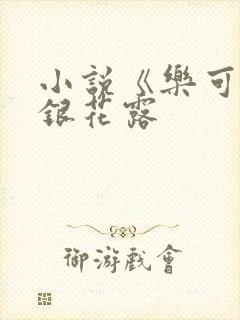 小說《樂可
銀花露
御游戲會